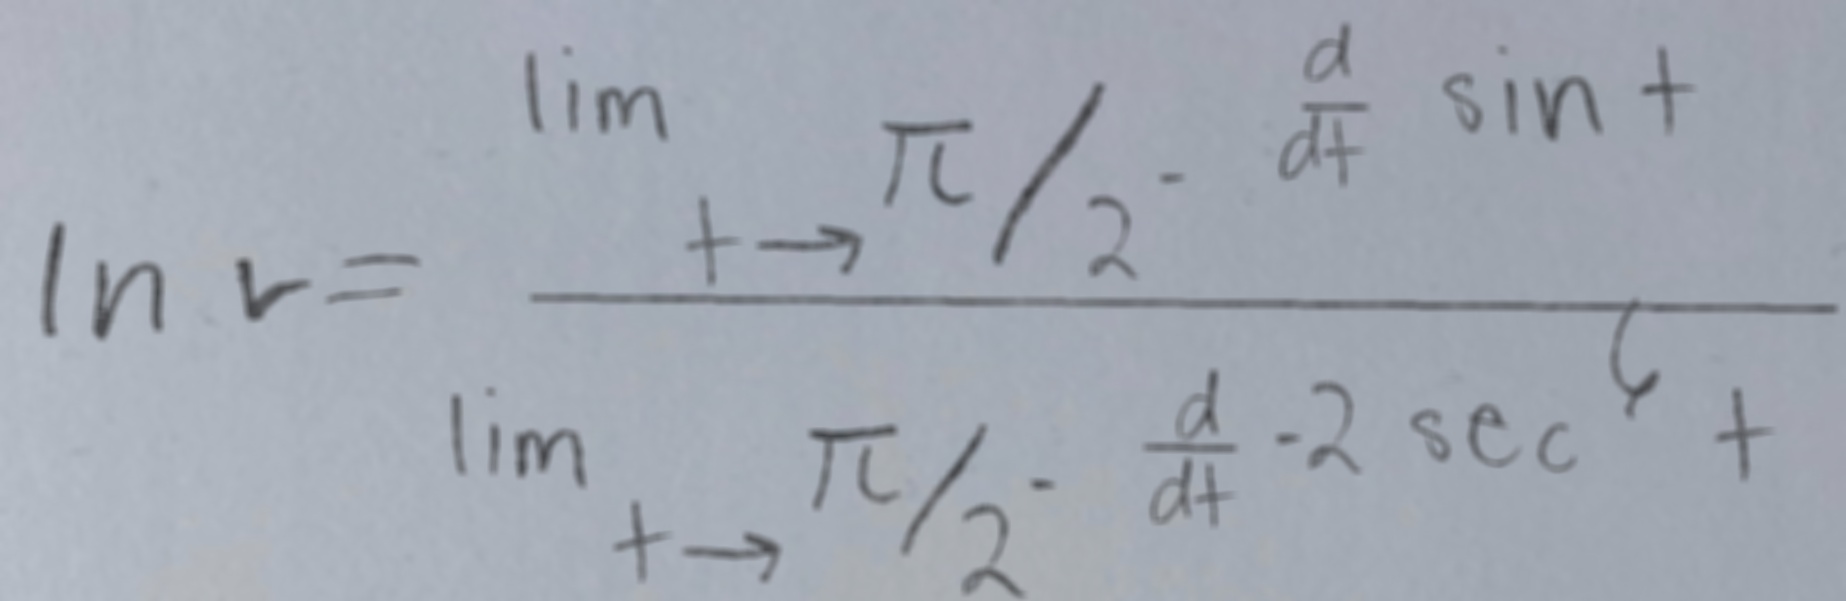 ln r = \frac{\lim_{t \to \pi/2^-} \frac{d}{dt} \sin t}{\lim_{t \to \pi/2^-} \frac{d}{dt} -2 \sec^6 t}